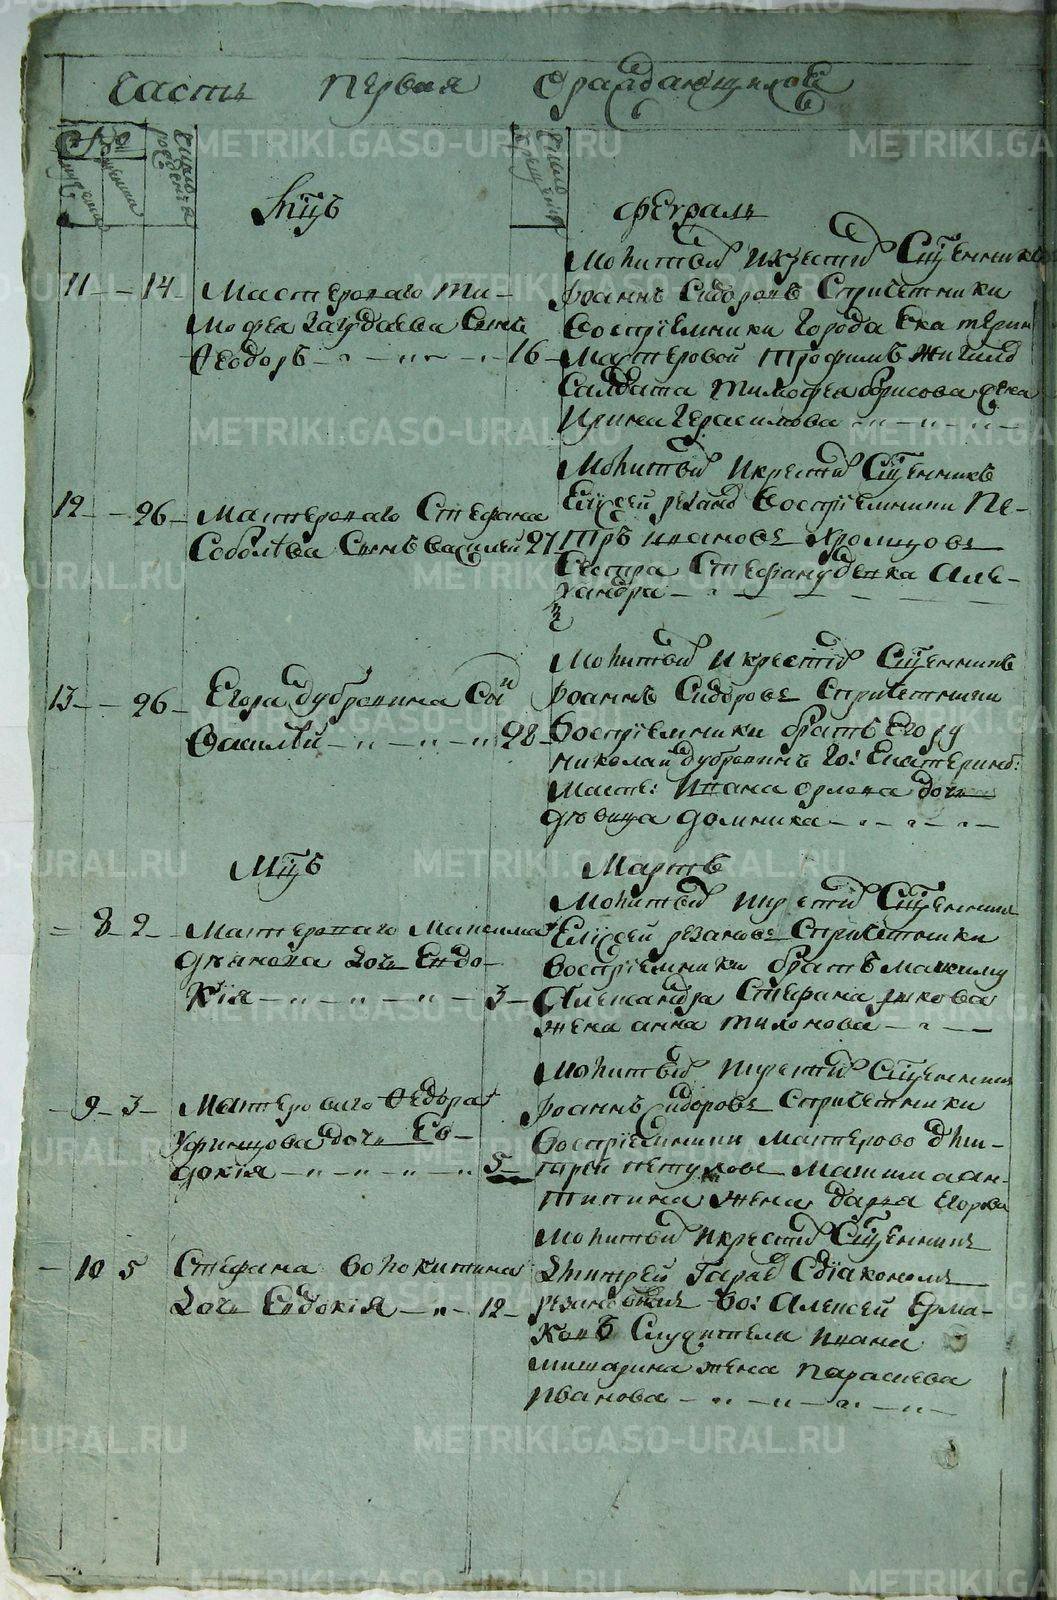 часть первая ораждающихся
число рожденiя
число крещенiя
Мцъ февраль
11 14 Мастероваго Ти-
мофея Сынъ
Феодоръ 16
Молитвъ и крестъ Сщенникъ
Iоаннъ Сидоровъ Спричетники
Воспрiемники города Екатерин
Мастеровой Трофимъ
Салдата Тимофея Борисова жена
Ирина Герасимова
12 26 Мастероваго Стефана
Соболева Сынъ василей 27
Молитвъ и крестъ Сщенникъ
Елисей Воспрiемники Пе-
тръ ивановъ
Сестра Стефану девка Але-
ксандра
13 26 Егора дубровина Сынъ
Василей 28
Молитвъ и крестъ Сщенникъ
Iоаннъ Сидоровъ Спричетники
Воспрiемники братъ Егору
николай дубровинъ Го: Екатеринб:
Масте: Ивана орлова дочь
девица домника
Мцъ Мартъ
8 2 Мастероваго Максима
дочь Евдо-
кiя 3
Молитвъ и крестъ Сщенникъ
Елисей резановъ Спричетники
Воспрiемники братъ максиму
Александра Стефана
жена анна тихонова
9 3 Мастероваго Федора
Уфинцова дочь Ев-
докiя 5
Молитвъ и крестъ Сщенникъ
Iоаннъ Сидоровъ Спричетники
Воспрiемники мастерово дми-
трей петуховъ Максима ан-
типина жена дарья Егорова
10 5 Стефана Волокитина
дочь Евдокiя 12
Молитвъ и крестъ Сщенникъ
Дмитрей Сдiакономъ
Во: Алексей Ерма-
ковъ Служителя ивана
мишарина жена параскева
иванова
METRIKI.GASO-URAL.RU